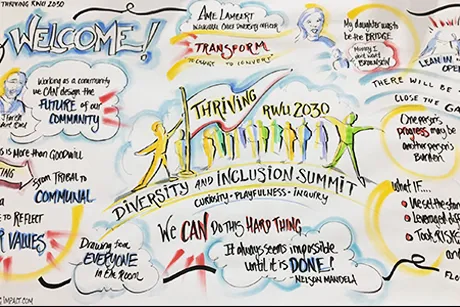 THRIVING RWU 2030
WELCOME!
Working as a community
we CAN design the
FUTURE of our
COMMUNITY
IS MORE THAN GOODWILL
FROM TRIBAL TO
COMMUNAL
TO REFLECT
VALUES
IMPACT.COM
AME LAMBERT
TRANSFORM
"TO CHANGE TO CONVERT"
THRIVING RWU 2030
DIVERSITY AND INCLUSION SUMMIT
CURIOSITY · PLAYFULNESS · INQUIRY
We CAN DO THIS HARD THING
Drawing from
EVERYONE
in the Room
It always seems impossible
until it is DONE!
- NELSON MANDELA
My daughter wants to
be the BRIDGE.
Mommy I
don't want
BROWN SKIN
LEAN IN
THERE WILL BE
CLOSE THE GA
One person's
progress may be
another person's
Burden
WHAT IF....
We set the stan
Leveraged differ
Took RISKS
and
FLO